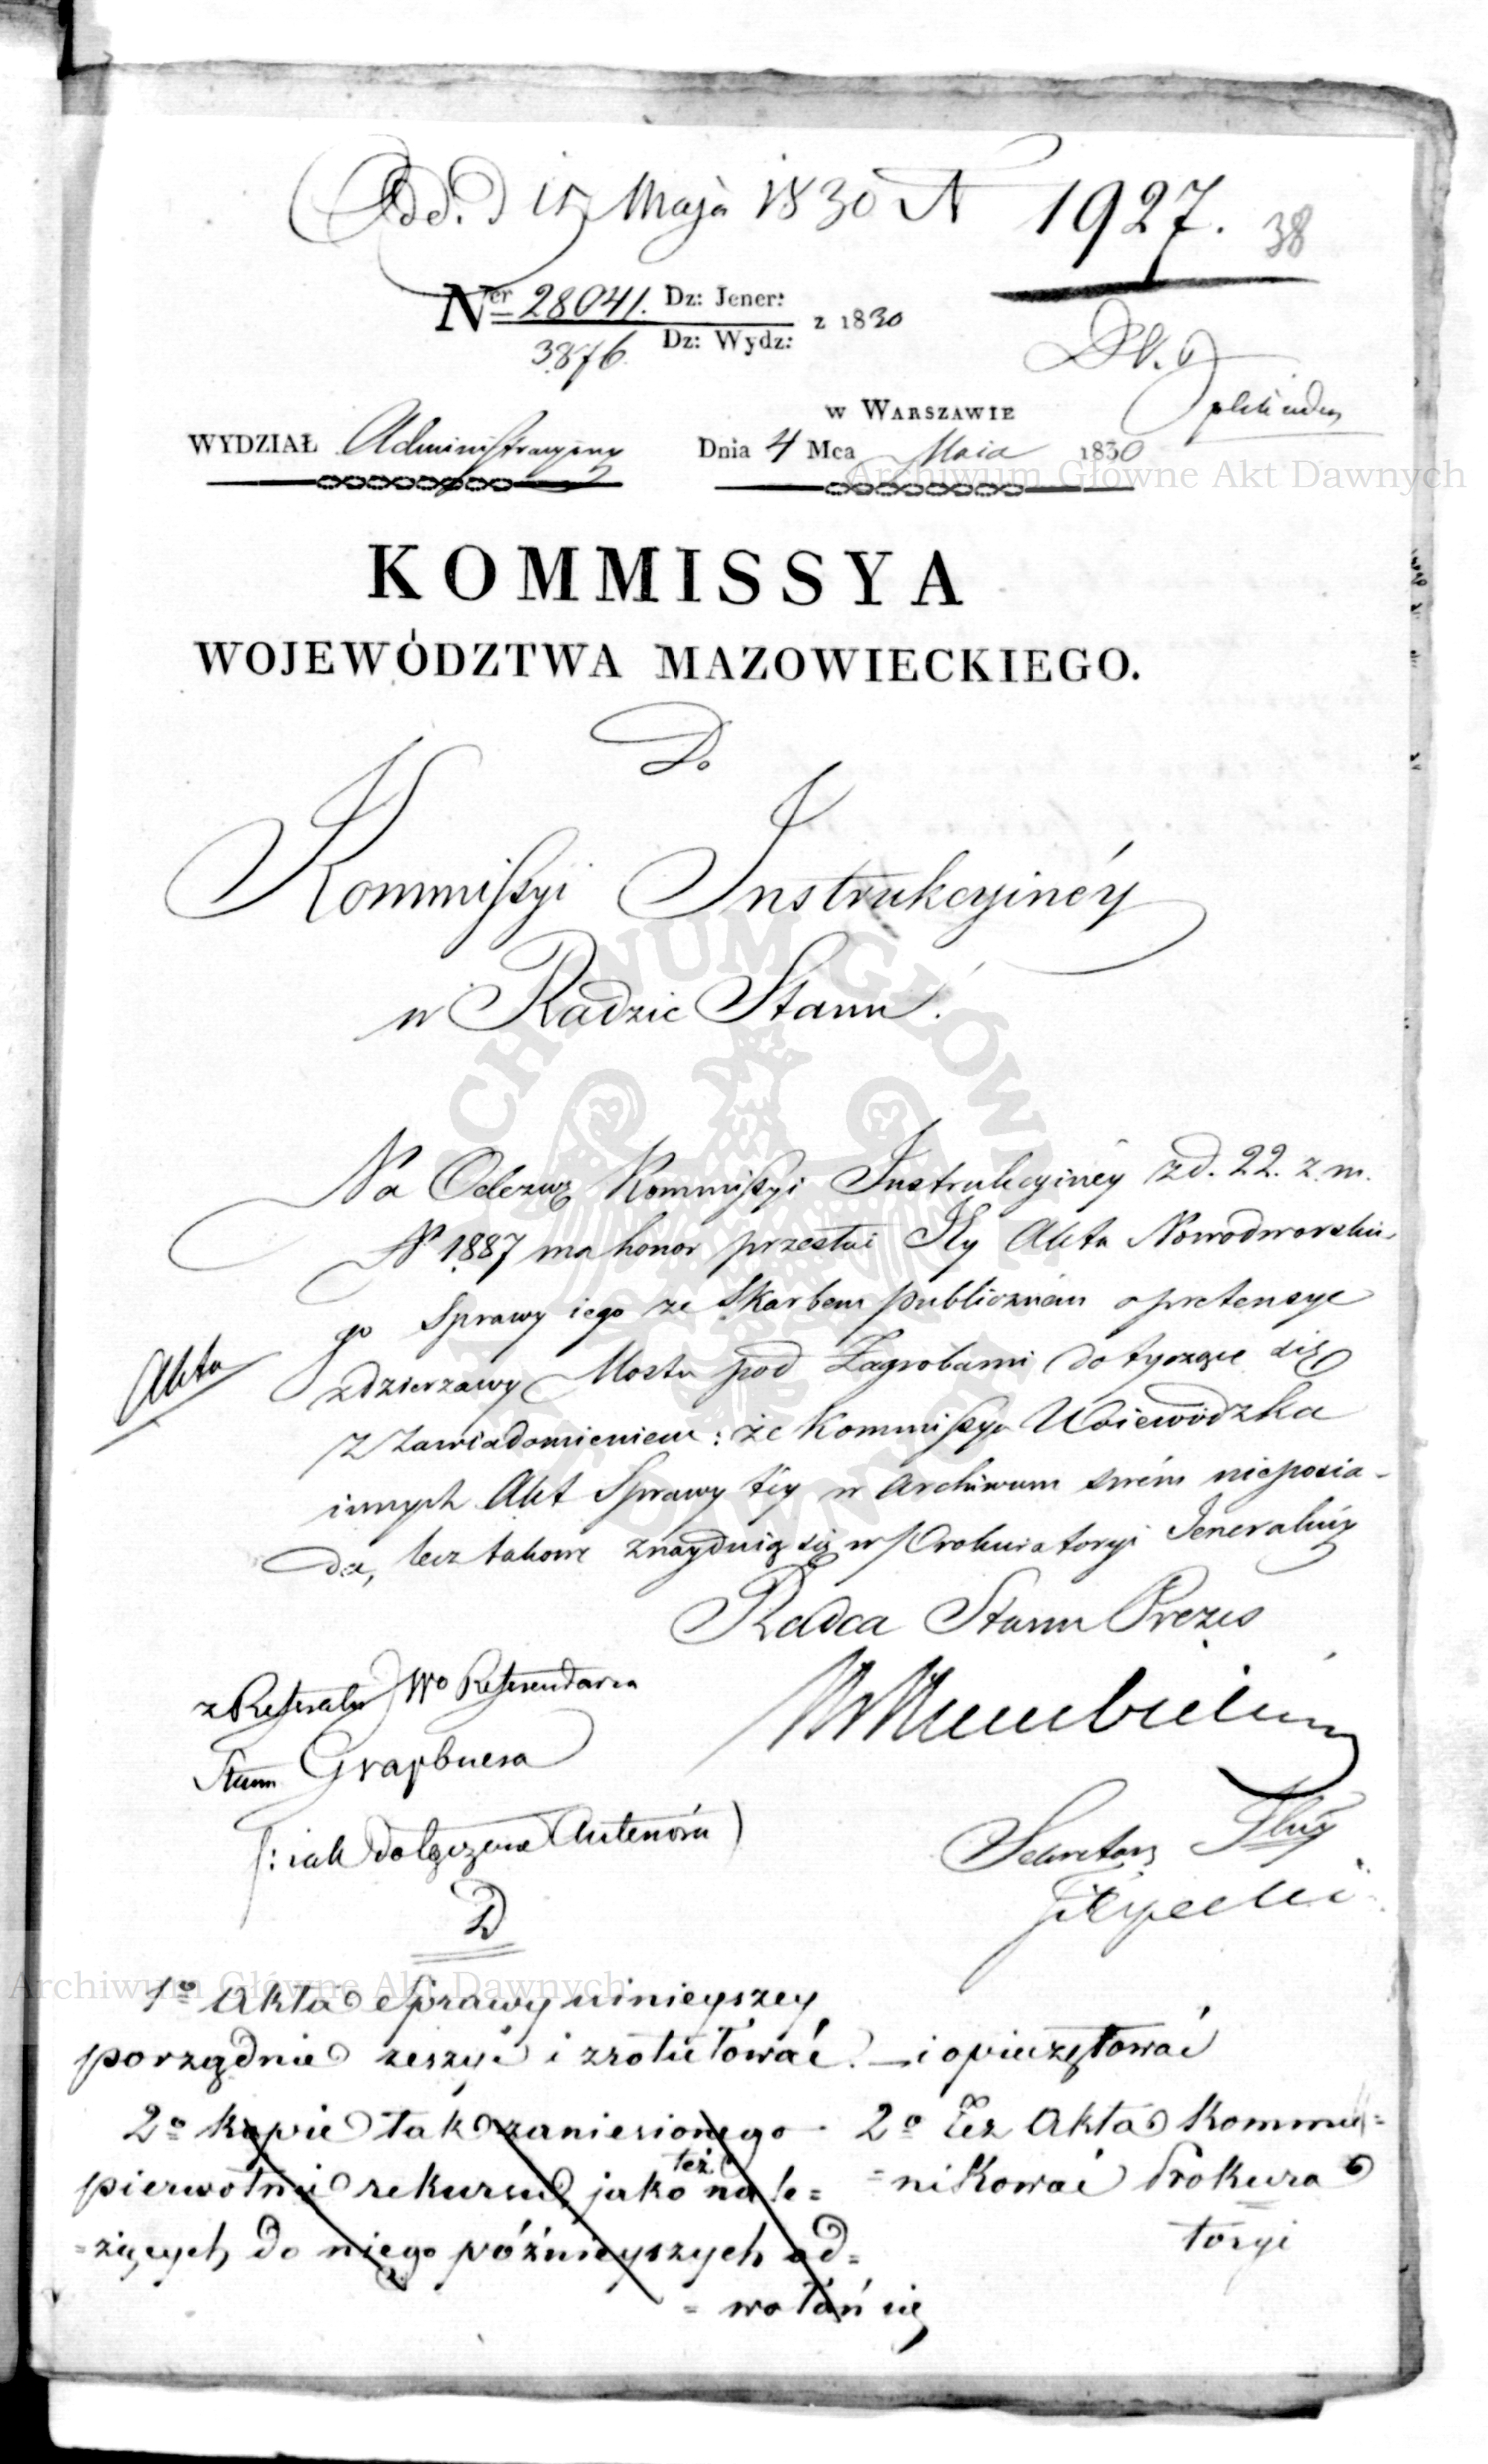 Odd. d 15 Maja 1830 N 1927.
38
Ner 28041. Dz: Jener:
3876 Dz: Wydz:
z 1830
w WARSZAWIE
WYDZIAŁ Administracyjny Dnia 4 Mca Maia 1830
Archiwum Główne Akt Dawnych
KOMMISSYA
WOJEWÓDZTWA MAZOWIECKIEGO.
Do
Kommissyi Instrukcyinéy
w Radzie Stanu.
Na Odezwę Kommissyi Instrukcyinéy z d. 22. z. m.
N 1887 ma honor przesłać Jéy Akta Nowodworskie-
go Sprawy iego ze Skarbem publiczném o pretensye
z dzierzawy Mostu pod Zagrobami dotyczące się
Akta
z zawiadomieniem: że Kommissya Woiewódzka
innych Akt Sprawy téy w Archiwum swém nieposia-
da, lecz takowe znayduią się w Prokuratoryi Jeneralnéy
Radca Stanu Prezes
z Referatu Wo Referendarza
Stanu Graybnera
(: iak dołączone
Sekretarz Jlny
Filipecki
D
Archiwum Główne Akt Dawnych
1o Akta Sprawy ninieyszey
porządnie zeszyć i zrotulować. – i opieczętować
2o kopie tak zaniesionego
pierwotnie rekursu, jako też nale=
=żących do niego późnieyszych od=
= wołań się
2o Też Akta Kommu=
=nikować Prokura
toryi